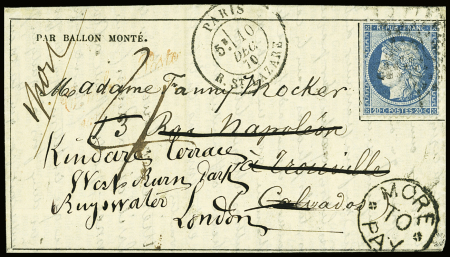 PAR BALLON MONTÉ.
PARIS
5E 10
DEC.
70
R. ST LAZARE
REPUB FRANC
20 C POSTES 20 C
Madame Fanny Mocker
3 Rue Napoléon
à Trouville
Calvados
Terrace
West Burn Park
London
MORE
TO
PAY